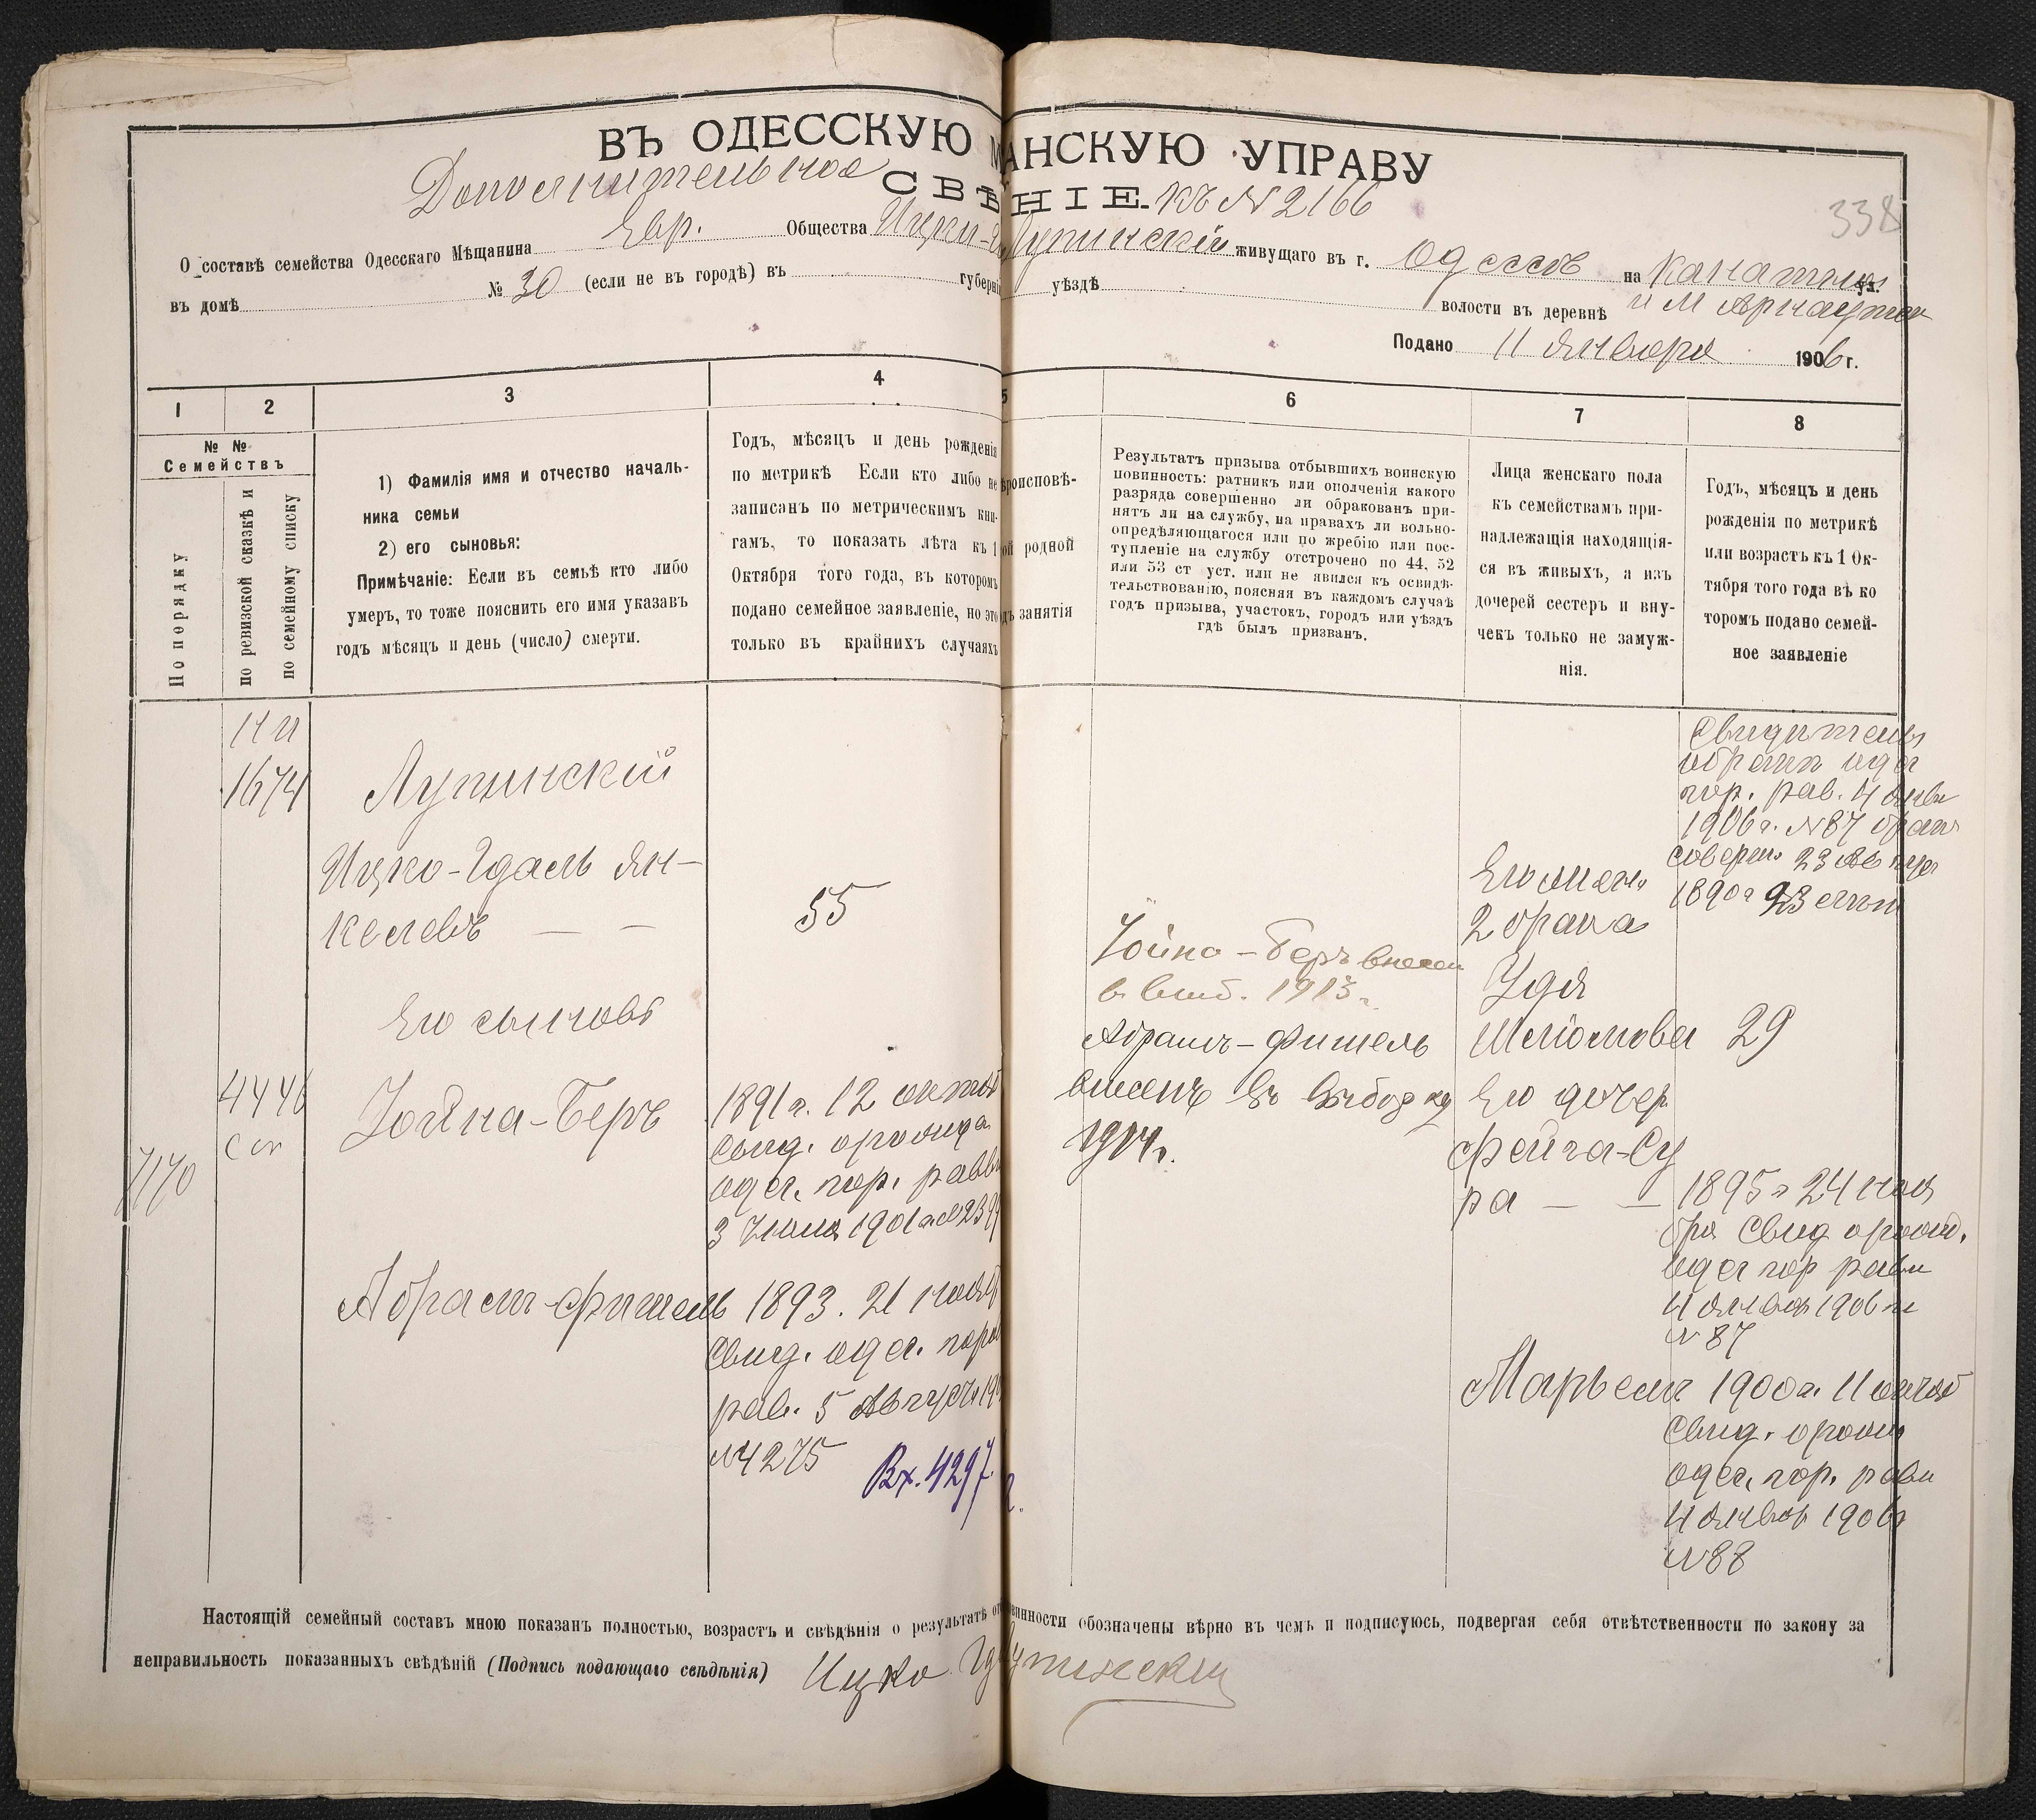 ВЪ ОДЕССКУЮ МѢЩАНСКУЮ УПРАВУ
Дополнительное СВѢДѢНІЕ. къ № 2166
338
О составѣ семейства Одесскаго Мѣщанина Евр. Общества Ицки- Лупинскій живущаго въ г. Одессѣ на Канатной ул.
и М Арнаутск
въ домѣ № 30 (если не въ городѣ) въ губерніи уѣздѣ волости въ деревнѣ
Подано 11 Января 1906 г.
1 2 3 4 5 6 7 8
№ №
Семействъ
По порядку
по ревизской сказкѣ и
по семейному списку
1) Фамилія имя и отчество началь-
ника семьи
2) его сыновья:
Примѣчаніе: Если въ семьѣ кто либо
умеръ, то тоже пояснить его имя указавъ
годъ мѣсяцъ и день (число) смерти.
Годъ, мѣсяцъ и день рожденія
по метрикѣ Если кто либо не
записанъ по метрическимъ кни-
гамъ, то показать лѣта къ 1
Октября того года, въ которомъ
подано семейное заявленіе, но это
только въ крайнихъ случаяхъ
ѣроисповѣ-
ой родной
дъ занятія
Результатъ призыва отбывшихъ воинскую
повинность: ратникъ или ополченія какого
разряда совершенно ли обракованъ при-
нятъ ли на службу, на правахъ ли вольно-
опредѣляющагося или по жребію или пос-
тупленіе на службу отстрочено по 44, 52
или 53 ст уст. или не явился къ освидѣ-
тельствованію, поясняя въ каждомъ случаѣ
годъ призыва, участокъ, городъ или уѣздъ
гдѣ былъ призванъ.
Лица женскаго пола
къ семействамъ при-
надлежащія находящія-
ся въ живыхъ, а изъ
дочерей сестеръ и вну-
чекъ только не замуж-
нія.
Годъ, мѣсяцъ и день
рожденія по метрикѣ
или возрастъ къ 1 Ок-
тября того года въ ко
торомъ подано семей-
ное заявленіе
1674
Лупинскій
Ицко-Гдаль Ян-
келевъ — —
55
Его сыновѣ
4446
7170
Іойна-Беръ
1891 г. 12 октяб
Свид. о рожд
одес. гор. равви
3 Іюня 1901 г. № 2399
Абрамъ-Фишель
1893. 21 нояб
Свид. одес. гор
рав. 5 Август 19
№ 4275
Вх. 4297
Іойна-Беръ внесен
в выб. 1913 г.
Абрамъ-Фишель
внесенъ въ выборку
1914 г.
Его жена
2 брака
Удя
Шліомова 29
Свидетель
о бракѣ одес
гор. рав. 4 Янв
1906 г. № 87 брак
соверш. 23 Августа
1890 г
Его дочер
Фейга-Су
ра — — 1895 г 24 ноя
бря Свид о рожд.
одес гор равви
4 Января 1906 г
№ 87
Марьемъ 1900 г. 11 октяб
Свид. о рожд
одес. гор. равви
4 Января 1906 г
№ 88
Настоящій семейный составъ мною показанъ полностью, возрастъ и свѣдѣнія о результатѣ от винности обозначены вѣрно въ чемъ и подписуюсь, подвергая себя отвѣтственности по закону за
неправильность показанныхъ свѣдѣній (Подпись подающаго свѣдѣнія) Ицко Гд Лупинскій